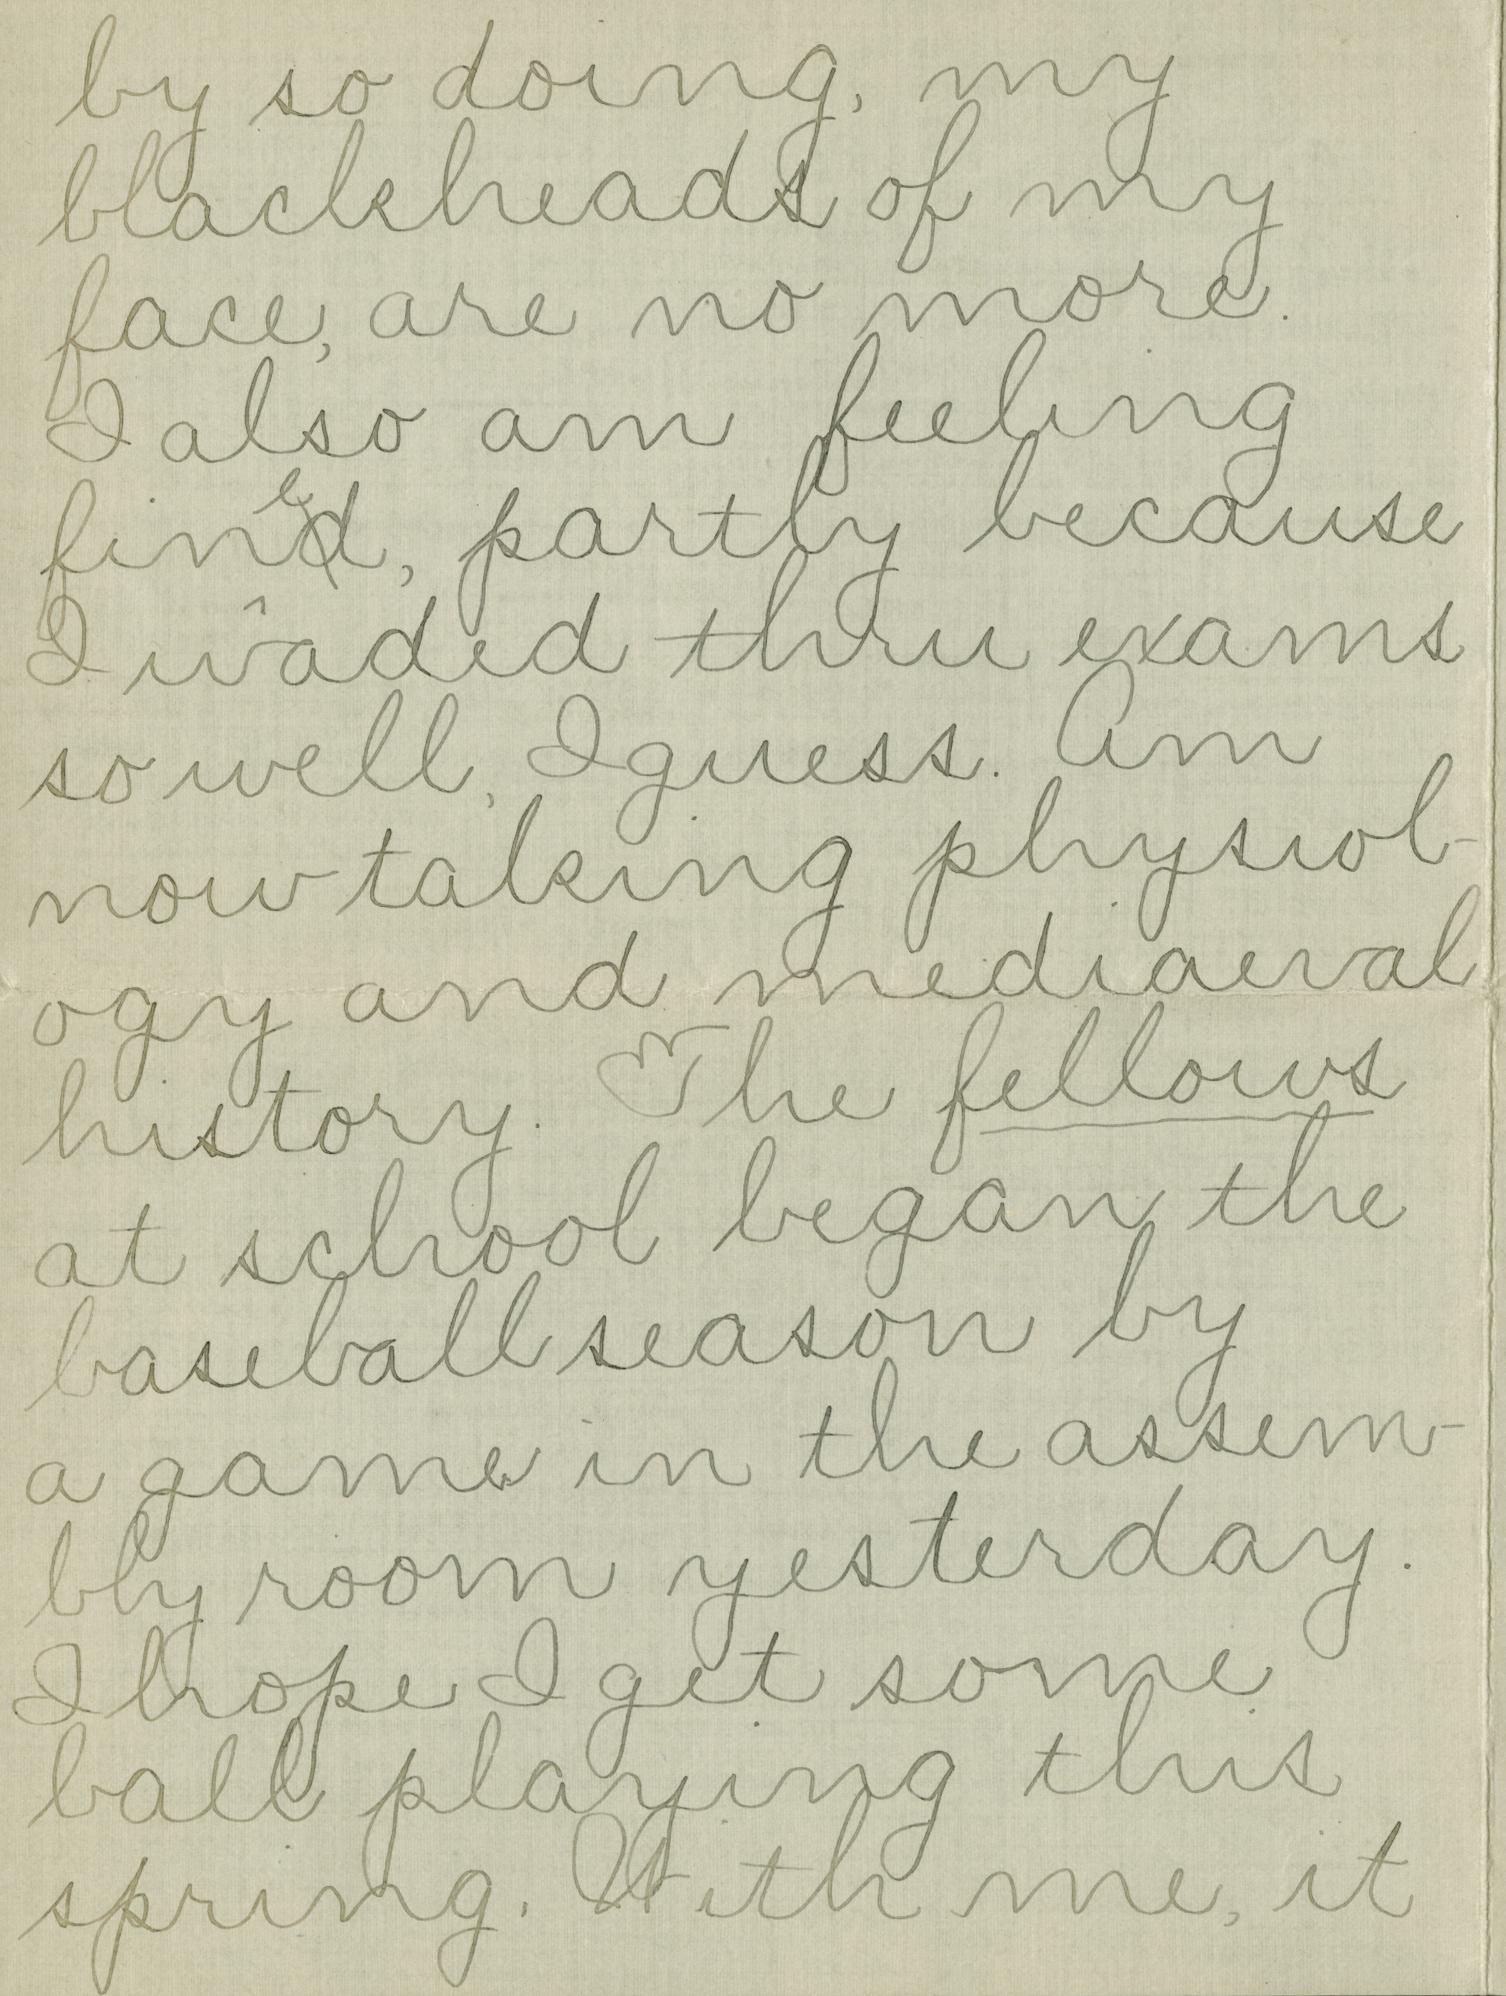 by so doing, my
blackheads of my
face, are no more.
I also am feeling
fine, partly because
I waded thru exams
so well, I guess. Am
now taking physiol-
ogy and mediaeval
history. The fellows
at school began the
baseball season by
a game in the assem-
bly room yesterday.
I hope I get some
ball playing this
spring. With me, it